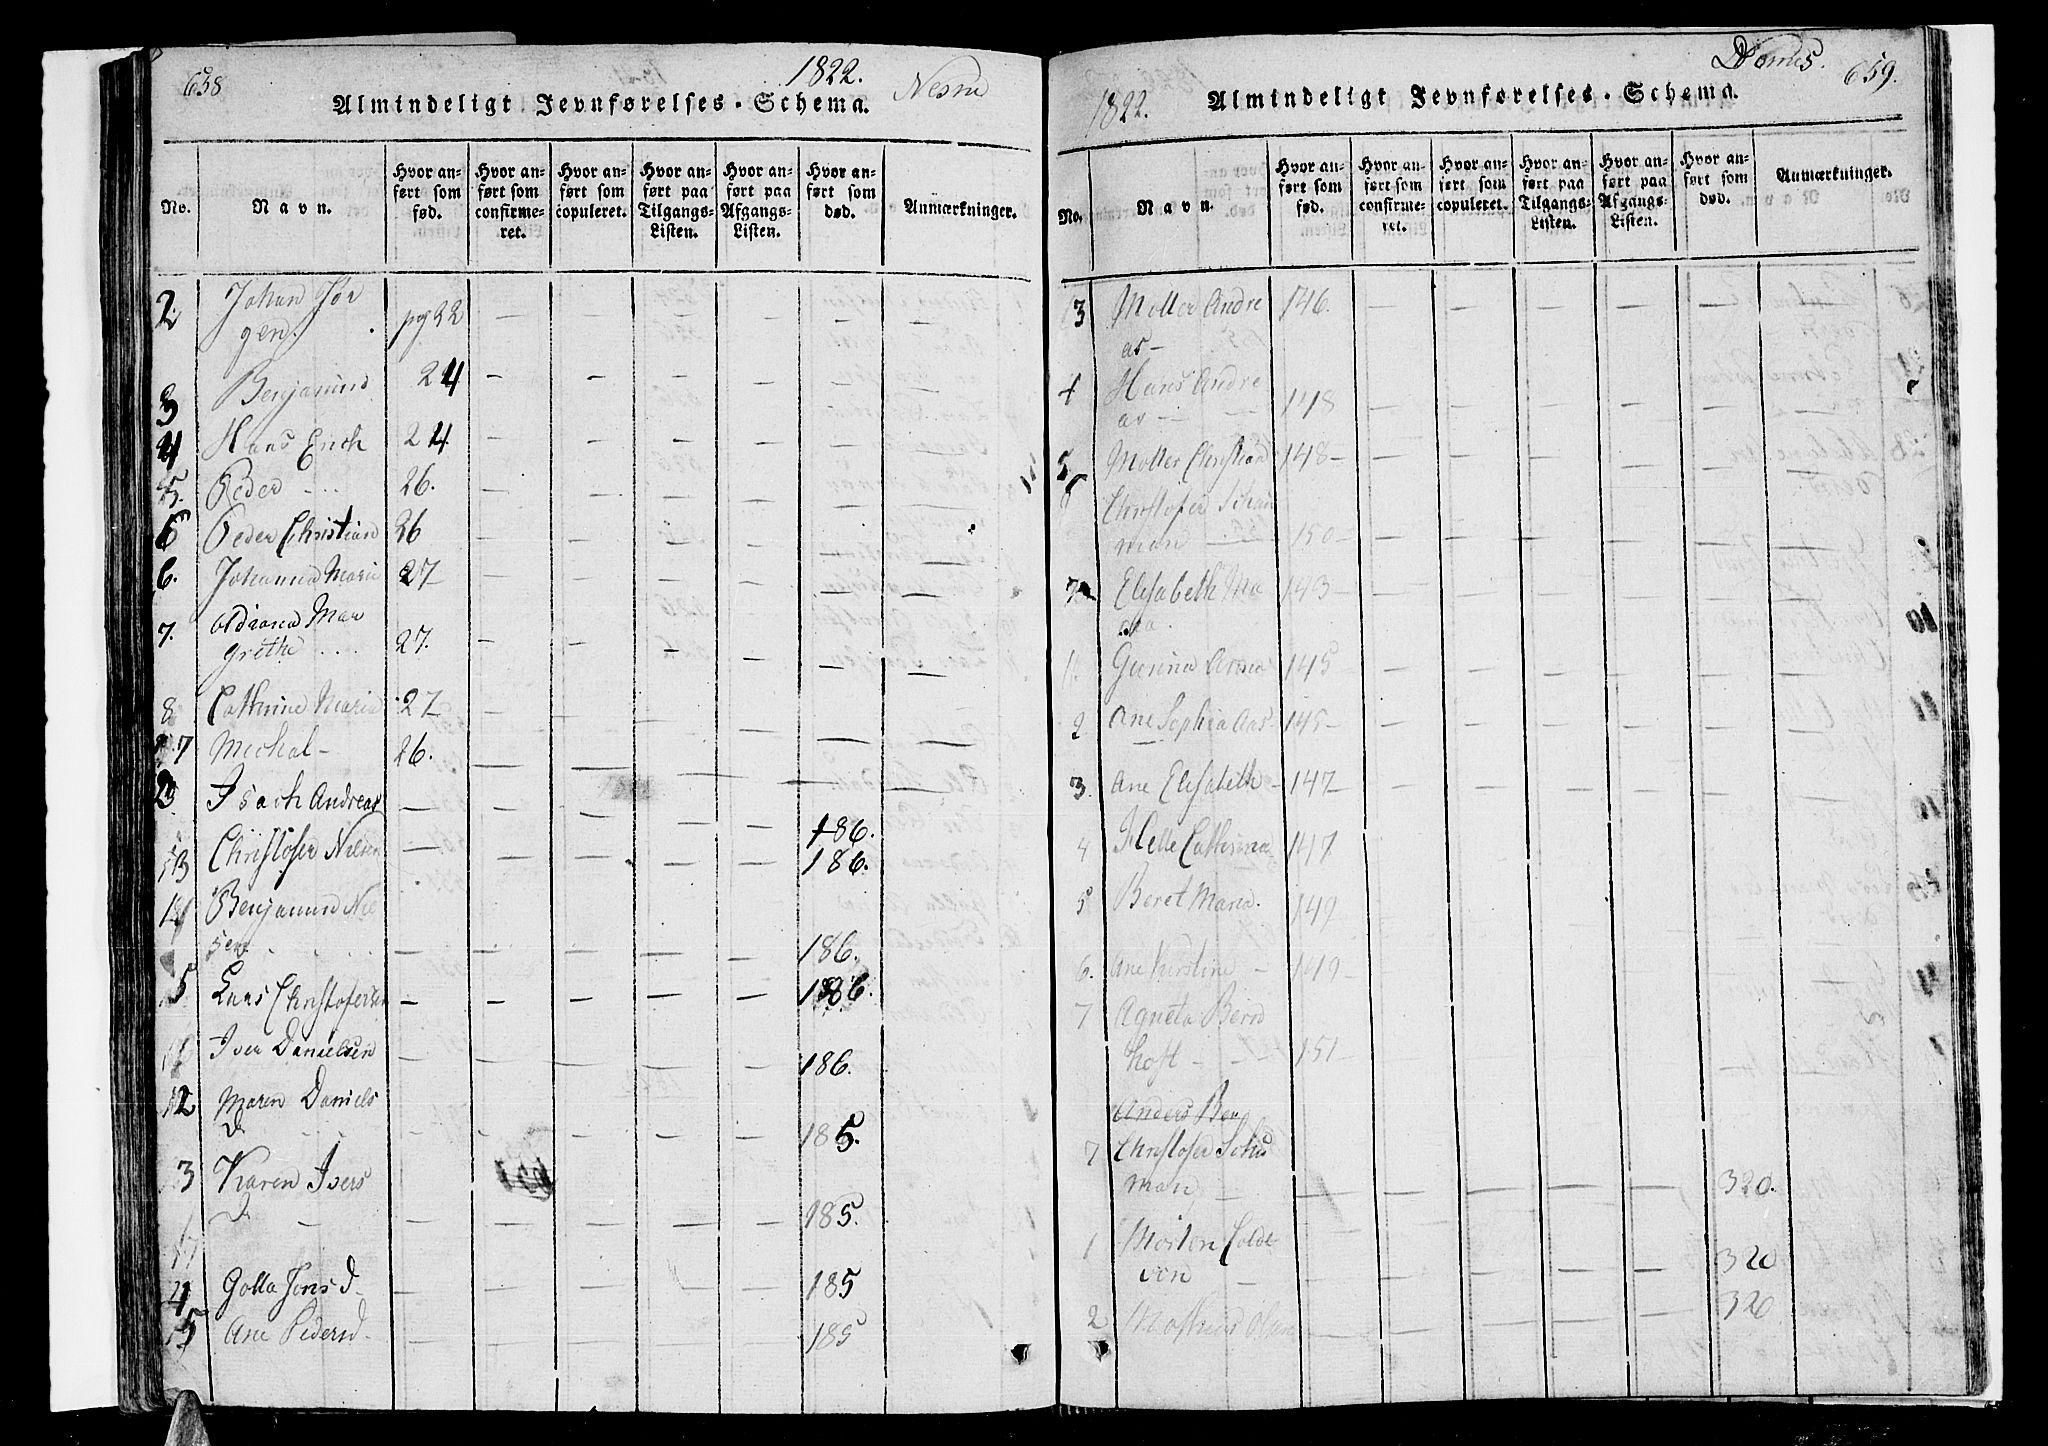 658
1822.
Nesne
Almindeligt Jevnførelses-Schema.
No.
Navn.
Hvor anført som fød.
Hvor anført som confirmeret.
Hvor anført som copuleret.
Hvor anført paa Tilgangs-Listen.
Hvor anført paa Afgangs-Listen.
Hvor anført som død.
Anmærkninger.
2. Johan Jør
gen. pag 22 — — — — — —
3 Benjamind 24 — — — — — —
4 Hans Erich 24 — — — — — —
5. Peder 26. — — — — — —
6 Peder Christian 26 — — — — — —
6. Johanna Maria 27 — — — — — —
7. Adriana Mar
grethe 27. — — — — — —
8 Cathrine Maria 27 — — — — — —
Michal — 26. — — — — — —
Isach Andreas — — — — — 186.
Christofer Nielsen — — — — — 186.
Benjamind Niel
sen — — — — — 186.
5 Lars Christofersen — — — — — 186.
Iver Danielsen — — — — — 186.
12 Maren Daniels
D — — — — — 185.
3 Karen Ivers
D — — — — — — 185.
4 Golla Jens D. — — — — — 185
5 Ane Pedersd. — — — — — 185
1822.
Dønnes. 659.
Almindeligt Jevnførelses-Schema.
No.
Navn.
Hvor anført som fød.
Hvor anført som confirmeret.
Hvor anført som copuleret.
Hvor anført paa Tilgangs-Listen.
Hvor anført paa Afgangs-Listen.
Hvor anført som død.
Anmærkninger.
3 Moller Andre 146. — — — — —
as —
4 Hans Andre
as — 148 — — — — —
5 Moller Christian 148 — — — — —
6 Christofer Schu
man 150 — — — — —
7 Elisabeth Ma 143 — — — — —
ria.
1. Gurina Anna 145 — — — — —
2 Ane Sophia Aas 145 — — — — —
3. Ane Elisabeth — 147 — — — — —
4 Helle Cathrina 147 — — — — —
5 Beret Maria. 149 — — — — —
6. Ane Kirstine — 149 — — — — —
7 Agneta Bern
hoft — 151 — — — — —
Anders Ben
7 Christofer Schu
man — — — — — — 320.
1 Morten Colde
vin — — — — — — 320
2 Mathias Olsen — — — — — 320